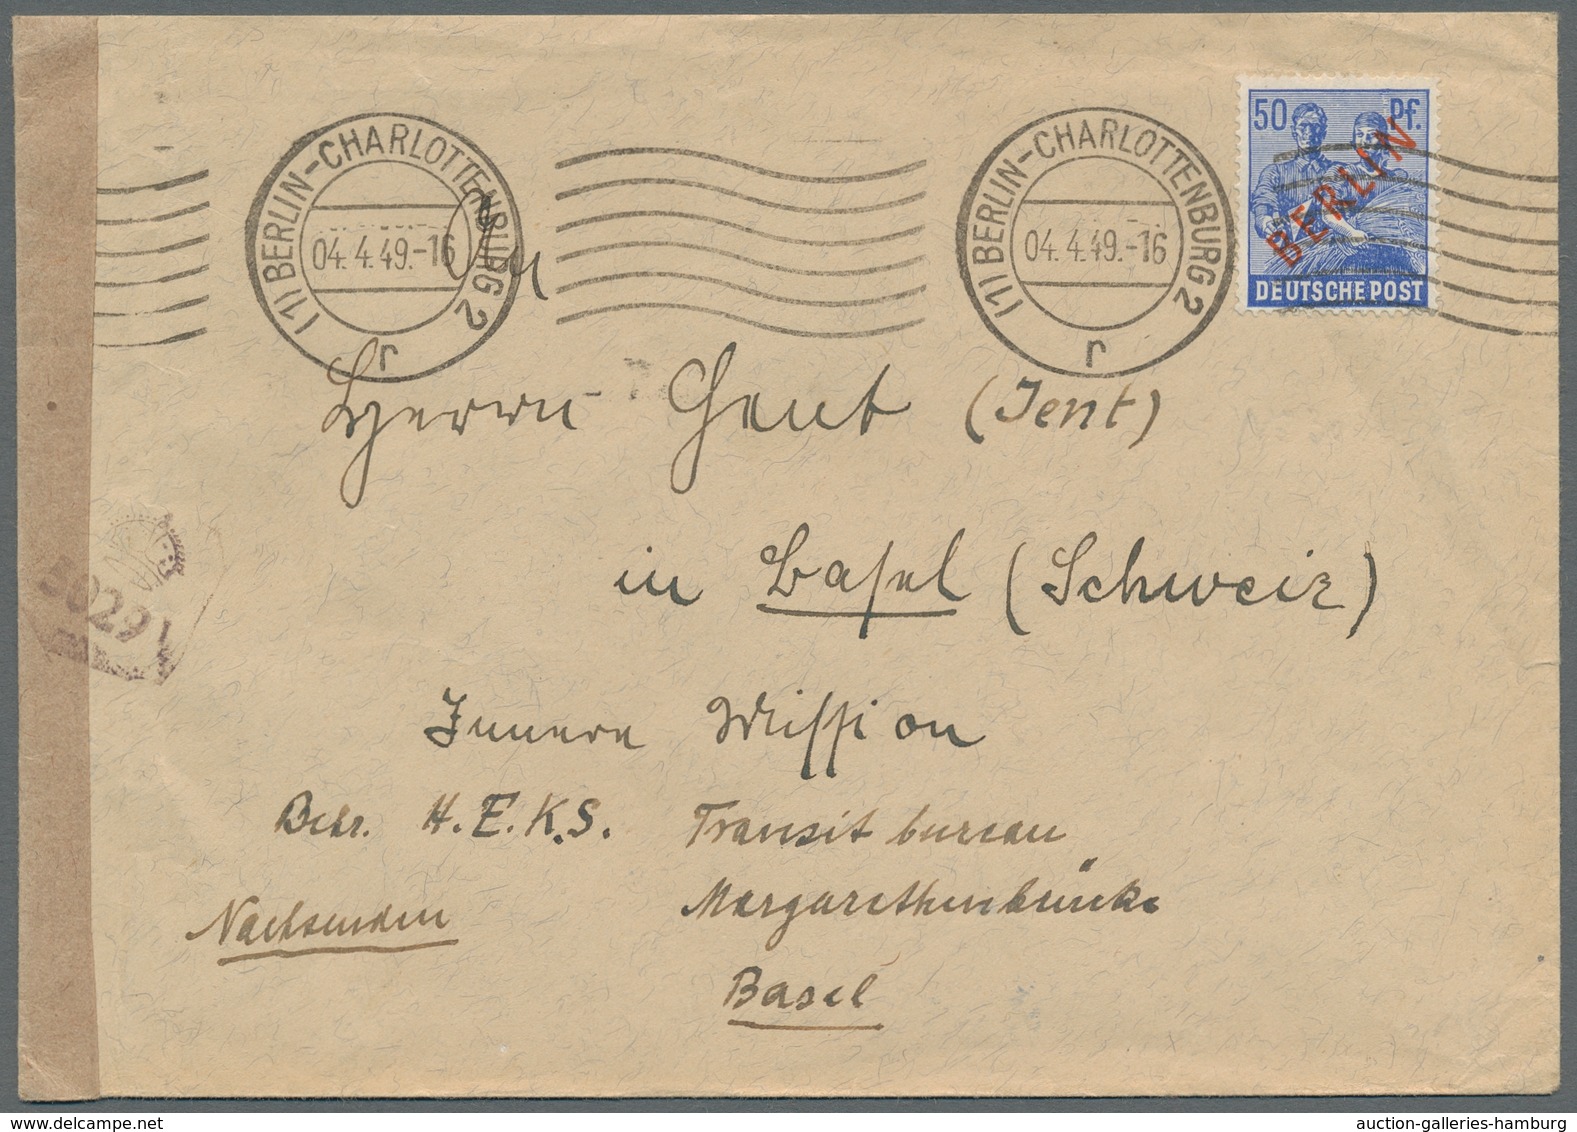 (1) BERLIN-CHARLOTTENBURG 2
04.4.49.-16
r
(1) BERLIN-CHARLOTTENBURG 2
04.4.49.-16
r
50 Pf.
BERLIN
DEUTSCHE POST
Herrn Gent (Jent)
in Basel (Schweiz)
Innere Mission
Betr. H.E.K.S. Transit bureau
Nachsenden Margarethenbrücke
Basel
50291
auction-galleries-hamburg